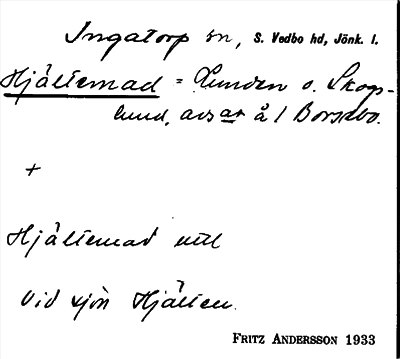 Ingatorp sn, S. Vedbo hd, Jönk. l.
Hjältemad = Lunden o. Skogs-
lund, avs ar å 1 Borsebo.
+
Hjältemad utl
vid sjön Hjälten.
FRITZ ANDERSSON 1933